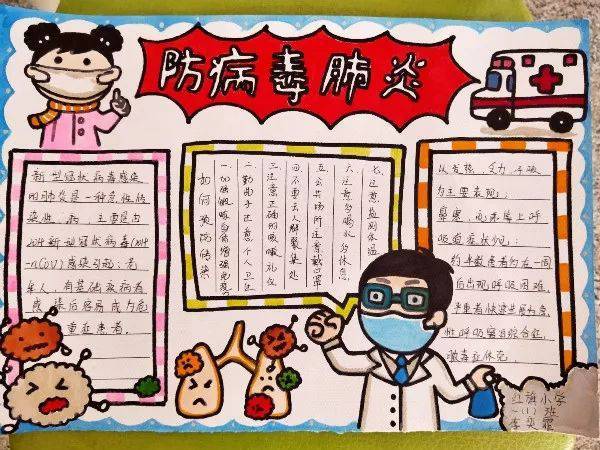 防病毒肺炎
新型冠状病毒感染
的肺炎是一种急性传
染性肺病 主要是由
2019新型冠状病毒(2019
-nCoV)感染引起:老
年人、有基础疾病者
感染后容易成为危
重症患者。
如何预防传染
一.加强锻炼身体增强免疫
二.勤洗手注意个人卫生
三.注意正确的咳嗽礼仪
四.不要去人群聚集处
五.公共场所注意戴口罩
六.注意多喝水多休息
七.注意监测体温
以发热、乏力、干咳
为主要表现;
鼻塞、流涕等上呼
吸道症状少见;
约半数患者约在一周
后出现呼吸困难,
严重者快速进展为急
性呼吸窘迫综合征、
脓毒症休克
红旗小学
一(1)班
李奕霏